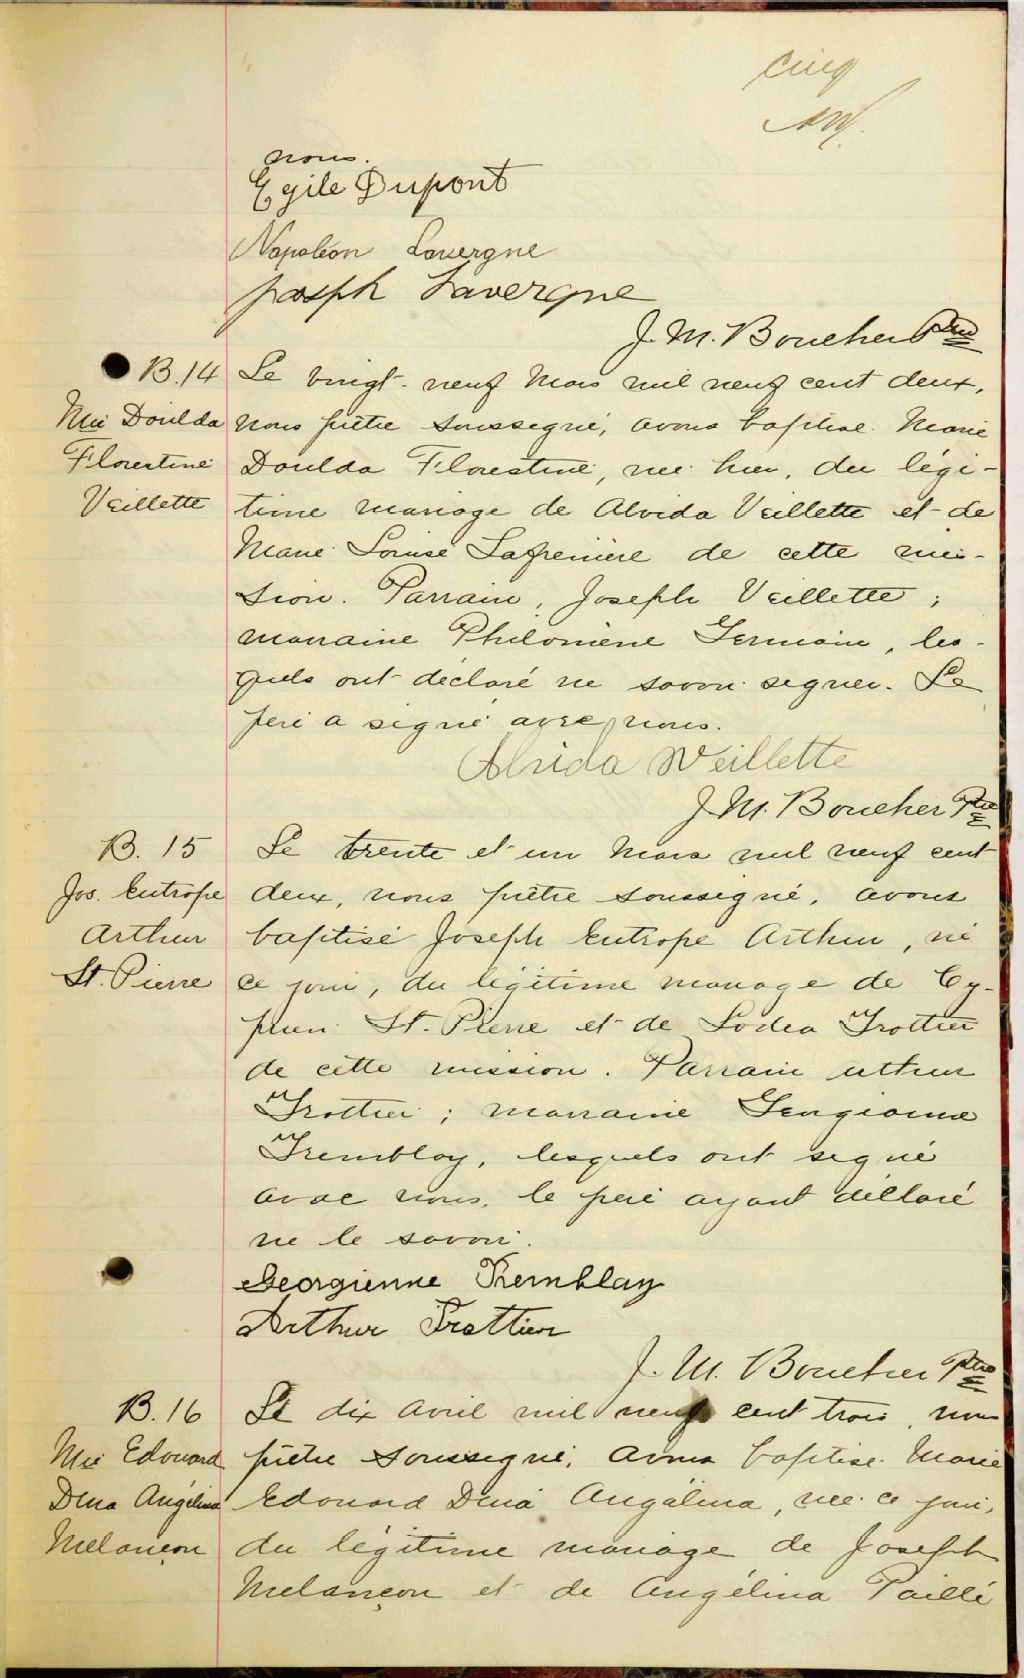 cinq
nous.
Egile Dupont
Napoléon Lavergne
Joseph Lavergne
J. M. Boucher Ptre
B. 14
Mie Doulda
Florestine
Veillette
Le vingt-neuf Mars mil neuf cent deux,
nous prêtre soussigné, avons baptisé Marie
Doulda Florestine, née hier, du légi-
time mariage de Alvida Veillette et de
Marie Louise Lafrenière de cette mis-
sion. Parrain, Joseph Veillette;
marraine Philomène Germain, les-
quels ont déclaré ne savoir signer. Le
père a signé avec nous.
Alvida Veillette
J. M. Boucher Ptre
B. 15
Jos. Eutrope
Arthur
St. Pierre
Le trente et un Mars mil neuf cent
deux, nous prêtre soussigné, avons
baptisé Joseph Eutrope Arthur, né
ce jour, du légitime mariage de Cy-
prien St. Pierre et de Lodea Trottier
de cette mission. Parrain Arthur
Trottier; marraine Georgianne
Tremblay, lesquels ont signé
avec nous, le père ayant déclaré
ne le savoir.
Georgienne Tremblay
Arthur Trottier
J. M. Boucher Ptre
B. 16
Mie Edouard
Dina Angélina
Melançon
Le dix Avril mil neuf cent trois, nous
prêtre soussigné, avons baptisé Marie
Edouard Dina Angélina, née ce jour,
du légitime mariage de Joseph
Melançon et de Angélina Paillé